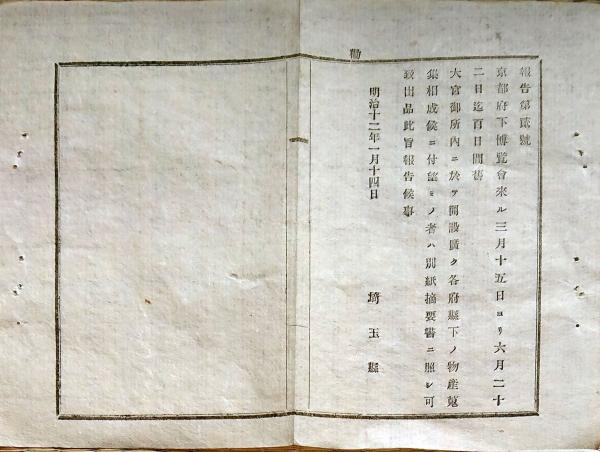 報告第貳號
京都府下博覽會來ル三月十五日ヨリ六月二十
二日迄百日間舊
大宮御所內ニ於テ開設廣ク各府縣下ノ物產蒐
集相成候ニ付望ミノ者ハ別紙摘要書ニ照シ可
致出品此旨報告候事
明治十二年一月十四日
埼玉縣
勸